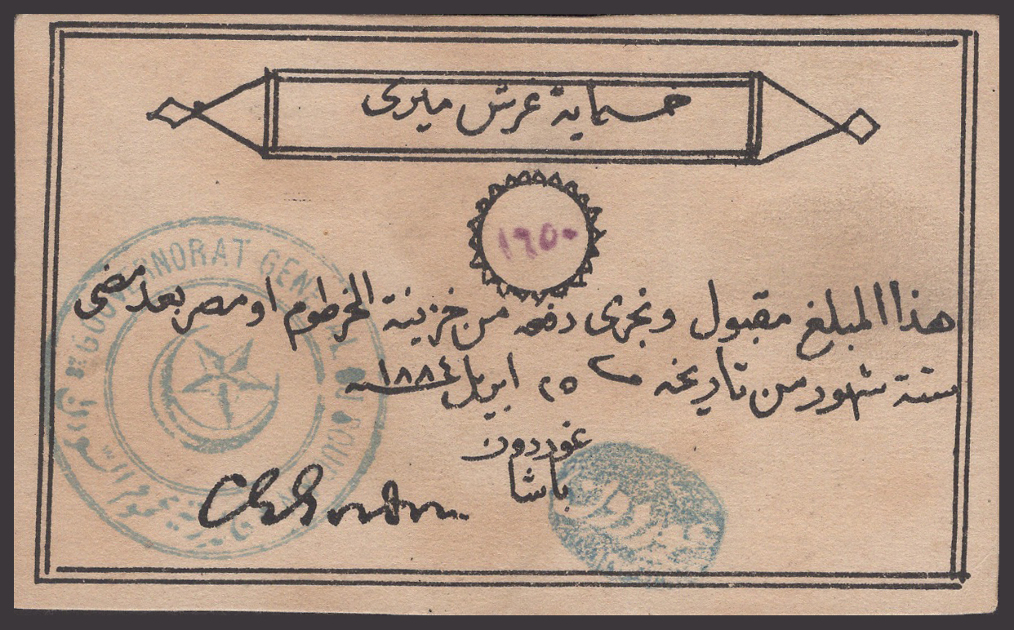 خمسماية غرش ميرى
١٦٥٠
هذا المبلغ مقبول ونجرى دفعه من خزينة الخرطوم او مصر بعد مضى
ستة شهور من تاريخه ٢٥ ابريل ١٨٨٤
غوردون
باشا
GOUVERNORAT GENERAL DU SOUDAN